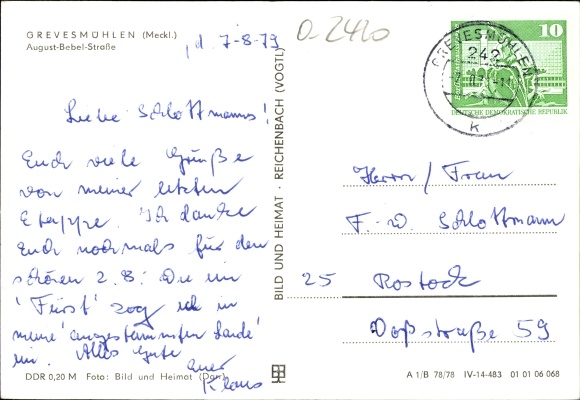 GREVESMÜHLEN (Meckl.)
August-Bebel-Straße
d. 7-8-79
Liebe Schlottmanns!
Euch viele Grüße
von meiner letzten
Etappe. Ich danke
Euch nochmals für den
schönen 2. 8.! Wie ein
'Fürst' zog ich in
meine 'angestammten Lande'
ein. Alles Gute
Euer
Klaus
DDR 0,20 M Foto: Bild und Heimat (Dan)
BILD UND HEIMAT · REICHENBACH (VOGTL)
0-2420
GREVESMÜHLEN
242
k
10
DEUTSCHE DEMOKRATISCHE REPUBLIK
Herrn / Frau
F. W. Schlottmann
25 Rostock
Doßstraße 59
A 1/B 78/78 IV-14-483 01 01 06 068